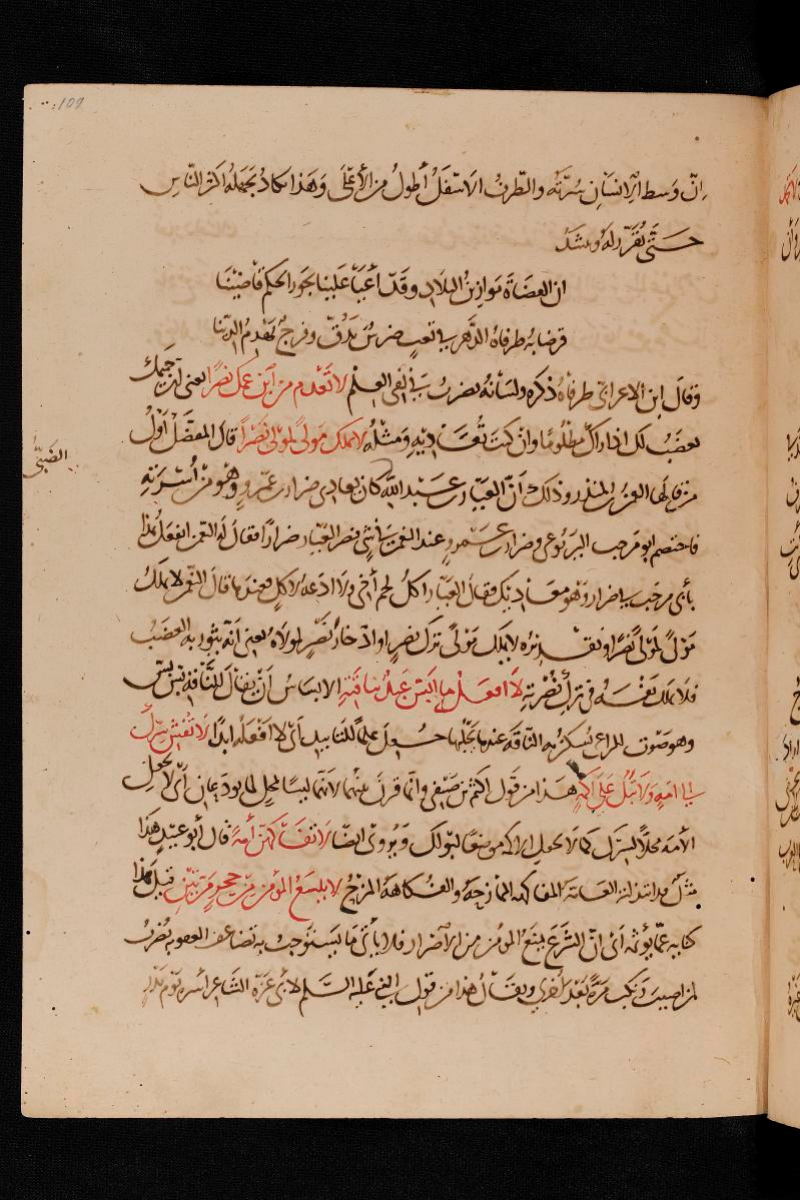 109
انّ وَسط الإنسَانِ سُرّتُه والطّرفُ الاسْفَلُ أطولُ مِنَ الأعْلَى وَهَذا يكادُ يَجهَلُه اكثر النّاسِ
حَتَّى يُقَرَّر لَه وينشدُ
ان القضَاةَ مَوازينُ البلَادِ وقَدْ أعْيَا عَلينا بجَور الحكم قاضينَا
قد ضابه طرفاهُ الدَّهرَ في تَعبٍ ضرسٌ يَدُقُّ وفرجٌ يَهْدِمُ الدّينا
وقالَ ابن الاعرابىّ طرفَاهُ ذكَره ولسَانُه يضربُ في نَفْي العِلْم لا تَعْدم مِنْ ابْن عَمّكَ نَصْرًا يعنى انّ حَميمكَ
يَغْضَبُ لكَ اذا رَآكَ مظلُومًا وانْ كنتَ تُعَادِيْهِ وَمثْلُهُ لا يملك مَولًى لمَوْلًى نَصْرًا قَالَ المفضَّلْ اَوّلُ
الضّبّىُّ
مَنْ قالهَا النعمٰنُ بن المنذر وذلكَ أنّ العيّار بن عَبْد الله كان يعادِى ضرار بن عَمْروٍ وهُو مِنْ أُسْرَتِهِ
فاختصم ابو مَرحب اليربُوعىّ وضرار بن عَمْروٍ عند النعمٰن في شَىْءٍ فنصر العَيّار ضرارًا فقالَ لهُ النعمٰن اتفعلُ هٰذا
بأبى مرحَبٍ في ضرار وَهُو مُعَاديكَ فقالَ العيّار آكلُ لحم أخى ولَا ادَعهُ لآكلٍ فعندَها قالَ النّعمٰن لا يملكُ
مَوْلًى لمَوْلًى نَصْرًا وتقديرُه لا يملِك مَوْلًى تَركَ نصرٍ او ادّخارَ نَصْرٍ لمولَاهُ يعنِى أنّه يثُور به الغضَبُ
فلَا يملك نَفْسَهُ في تركِ نُصْرَتِهِ لَا افعَلْ مَا ابَسّ عَبْدٌ بنَاقتِهِ الابسَاسُ اَنْ يقالَ للنّاقةِ بَسْ بَسْ
وهو صَوْت للراعى يُسكن بهِ النّاقَه عندمَا يحْلبُها جُعلَ علمًا للتابيدِ اىْ لا اَفْعَله ابدًا لا تُفْشِ سِرّكَ
الى امَةٍ وَلا تَبُلْ عَلى اَكَمةٍ هَذا مِنْ قَول اكثم بن صَيفى وانّما قرنَ بينَهُما لانّهما ليسَا بمحلٍ لما يودَعانِ اَىْ لا تجعلِ
الأمَه محلًّا لسِرّكَ كما لَا تجعلِ الاكمه موضعًا لبَوْلكَ وَيُروىٰ ايضًا لا تفَاكِهَنّ أمَهً قالَ أبو عبيْدٍ هَذا
مثلٌ قد ابتذلهُ العَامّةُ المفاكهة الممازحَهُ والفُكاهَهُ المزحُ لا يلسعُ المؤمنُ مِنْ جُحرٍ مَرّتيْنِ قيلَ هٰذا
كنايه عمّا يؤثمه اَىْ انّ الشّرعَ يمنَعُ المؤمنَ مِنَ الاصْرارِ فلَا يأتى مَا يسْتَوْجبُ بهِ تضاعفَ العقوبهِ يُضربُ
لمن اصيبَ ونُكبَ مَرّةً بَعْدَ اخْرى ويقَالُ هذا مِن قولِ النبى عَلَيه السَّلم لابى عَزَّة الشاعرِ اسرهُ يَوْم بَدْرٍ